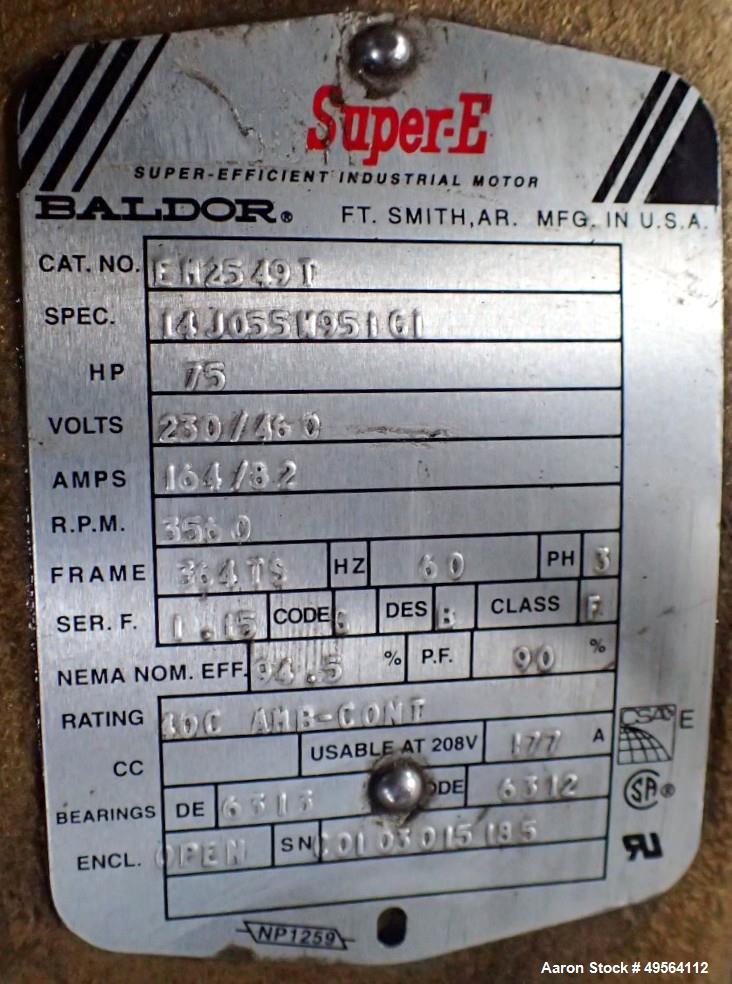 Super-E
SUPER-EFFICIENT INDUSTRIAL MOTOR
BALDOR® FT. SMITH, AR. MFG. IN U.S.A.
CAT. NO. EM2549T
SPEC. 14J055W951G1
HP 75
VOLTS 230/460
AMPS 164/82
R.P.M. 3560
FRAME 364TS HZ 60 PH 3
SER. F. 1.15 CODE G DES B CLASS F
NEMA NOM. EFF. 94.5 % P.F. 90 %
RATING 40C AMB-CONT
CC USABLE AT 208V 177 A
BEARINGS DE 6313 ODE 6312
ENCL. OPEN SN C0103015185
NP1259
CSA E
SA®
Aaron Stock # 49564112